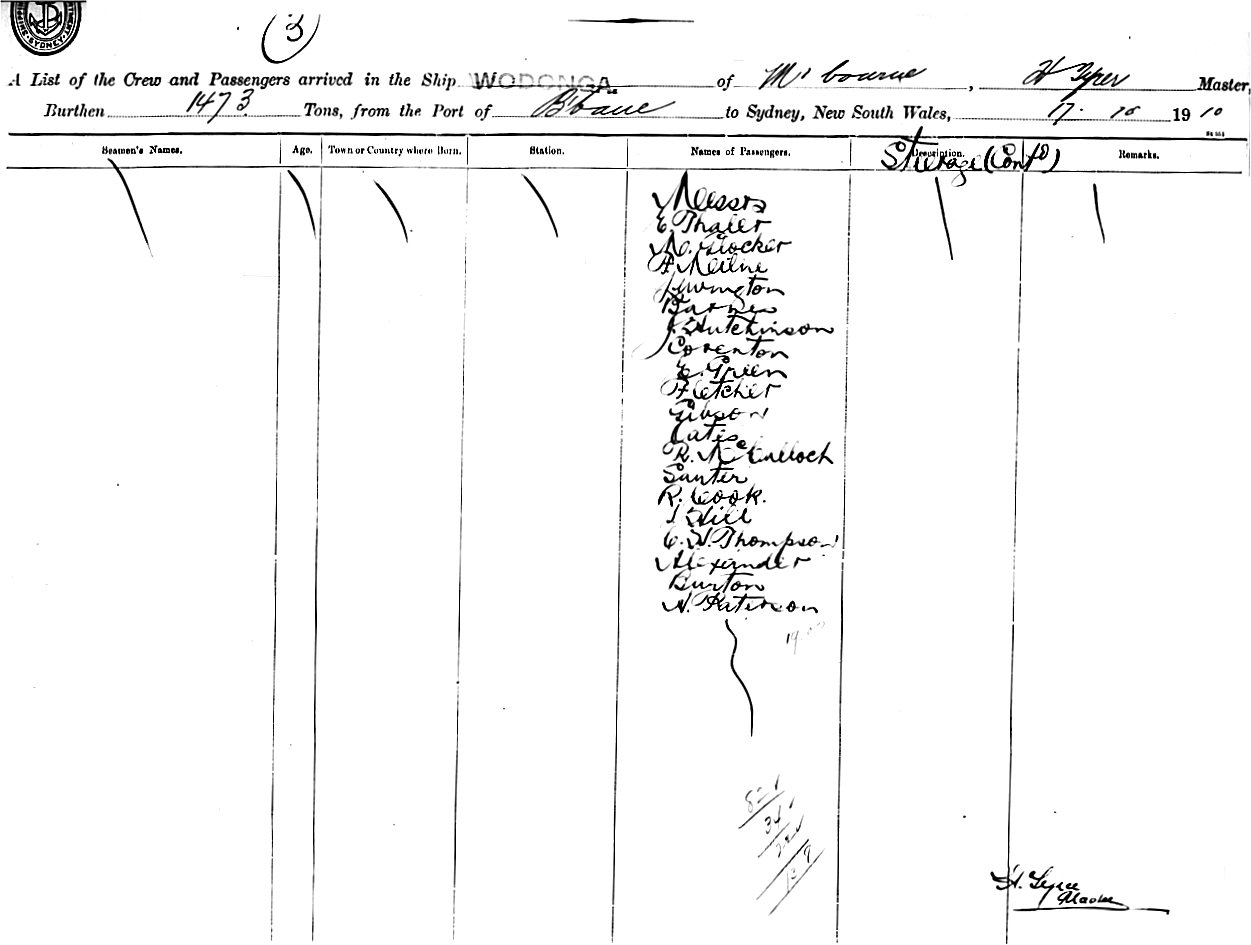 SYDNEY
(3)
A List of the Crew and Passengers arrived in the Ship WODONGA of M'bourne, H Tyrer Master,
Burthen 1473 Tons, from the Port of B'bane to Sydney, New South Wales, 17. 10 1910
Seamen's Names. Age. Town or Country where Born. Station. Names of Passengers. Description. Remarks.
Steerage (Contd)
Messrs
E. Thaler
A Milne
Barnes
J. Hutchinson
Coventon
E. Green
Fletcher
Gibson
R. McCulloch
Santer
R. Cook.
J Hill
C. W. Thompson
Alexander
Burton
N. Paterson
34
H. Tyrer
Master